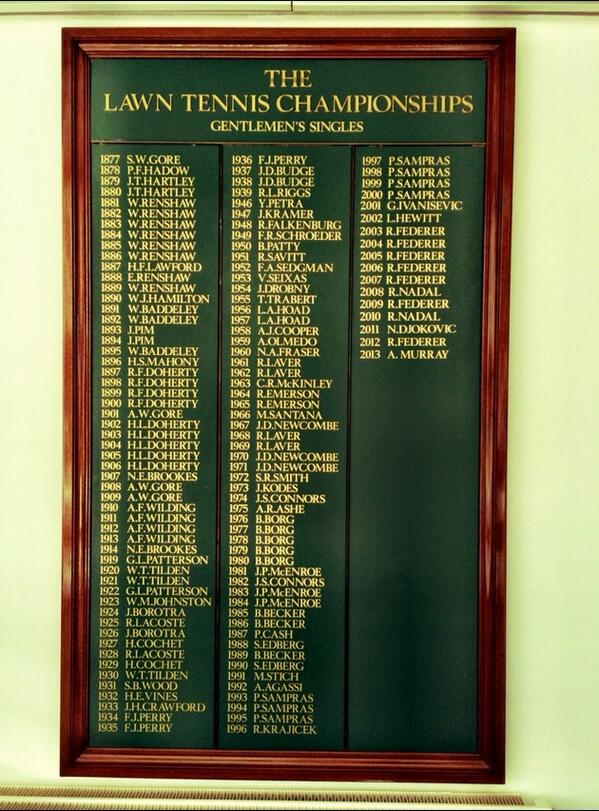 THE
LAWN TENNIS CHAMPIONSHIPS
GENTLEMEN'S SINGLES
1877 S.W.GORE
1878 P.F.HADOW
1879 J.T.HARTLEY
1880 J.T.HARTLEY
1881 W.RENSHAW
1882 W.RENSHAW
1883 W.RENSHAW
1884 W.RENSHAW
1885 W.RENSHAW
1886 W.RENSHAW
1887 H.F.LAWFORD
1888 E.RENSHAW
1889 W.RENSHAW
1890 W.J.HAMILTON
1891 W.BADDELEY
1892 W.BADDELEY
1893 J.PIM
1894 J.PIM
1895 W.BADDELEY
1896 H.S.MAHONY
1897 R.F.DOHERTY
1898 R.F.DOHERTY
1899 R.F.DOHERTY
1900 R.F.DOHERTY
1901 A.W.GORE
1902 H.L.DOHERTY
1903 H.L.DOHERTY
1904 H.L.DOHERTY
1905 H.L.DOHERTY
1906 H.L.DOHERTY
1907 N.E.BROOKES
1908 A.W.GORE
1909 A.W.GORE
1910 A.F.WILDING
1911 A.F.WILDING
1912 A.F.WILDING
1913 A.F.WILDING
1914 N.E.BROOKES
1919 G.L.PATTERSON
1920 W.T.TILDEN
1921 W.T.TILDEN
1922 G.L.PATTERSON
1923 W.M.JOHNSTON
1924 J.BOROTRA
1925 R.LACOSTE
1926 J.BOROTRA
1927 H.COCHET
1928 R.LACOSTE
1929 H.COCHET
1930 W.T.TILDEN
1931 S.B.WOOD
1932 H.E.VINES
1933 J.H.CRAWFORD
1934 F.J.PERRY
1935 F.J.PERRY
1936 F.J.PERRY
1937 J.D.BUDGE
1938 J.D.BUDGE
1939 R.L.RIGGS
1946 Y.PETRA
1947 J.KRAMER
1948 R.FALKENBURG
1949 F.R.SCHROEDER
1950 B.PATTY
1951 R.SAVITT
1952 F.A.SEDGMAN
1953 V.SEIXAS
1954 J.DROBNY
1955 T.TRABERT
1956 L.A.HOAD
1957 L.A.HOAD
1958 A.J.COOPER
1959 A.OLMEDO
1960 N.A.FRASER
1961 R.LAVER
1962 R.LAVER
1963 C.R.McKINLEY
1964 R.EMERSON
1965 R.EMERSON
1966 M.SANTANA
1967 J.D.NEWCOMBE
1968 R.LAVER
1969 R.LAVER
1970 J.D.NEWCOMBE
1971 J.D.NEWCOMBE
1972 S.R.SMITH
1973 J.KODES
1974 J.S.CONNORS
1975 A.R.ASHE
1976 B.BORG
1977 B.BORG
1978 B.BORG
1979 B.BORG
1980 B.BORG
1981 J.P.McENROE
1982 J.S.CONNORS
1983 J.P.McENROE
1984 J.P.McENROE
1985 B.BECKER
1986 B.BECKER
1987 P.CASH
1988 S.EDBERG
1989 B.BECKER
1990 S.EDBERG
1991 M.STICH
1992 A.AGASSI
1993 P.SAMPRAS
1994 P.SAMPRAS
1995 P.SAMPRAS
1996 R.KRAJICEK
1997 P.SAMPRAS
1998 P.SAMPRAS
1999 P.SAMPRAS
2000 P.SAMPRAS
2001 G.IVANISEVIC
2002 L.HEWITT
2003 R.FEDERER
2004 R.FEDERER
2005 R.FEDERER
2006 R.FEDERER
2007 R.FEDERER
2008 R.NADAL
2009 R.FEDERER
2010 R.NADAL
2011 N.DJOKOVIC
2012 R.FEDERER
2013 A. MURRAY